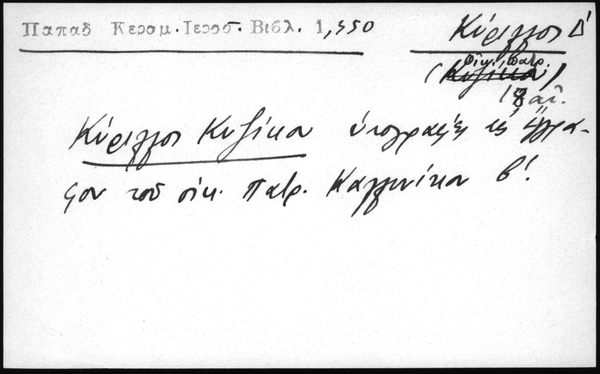 Παπαδ Κεραμ. Ιεροσ. Βιβλ. 1,450
Κύριλλος Δ'
(Κυζίκου) οἰκ. πατρ.
18 αἰ.
Κύριλλος Κυζίκου ὑπογραφὴ εἰς ἔγγρα-
φον τοῦ οἰκ. πατρ. Καλλινίκου β'.